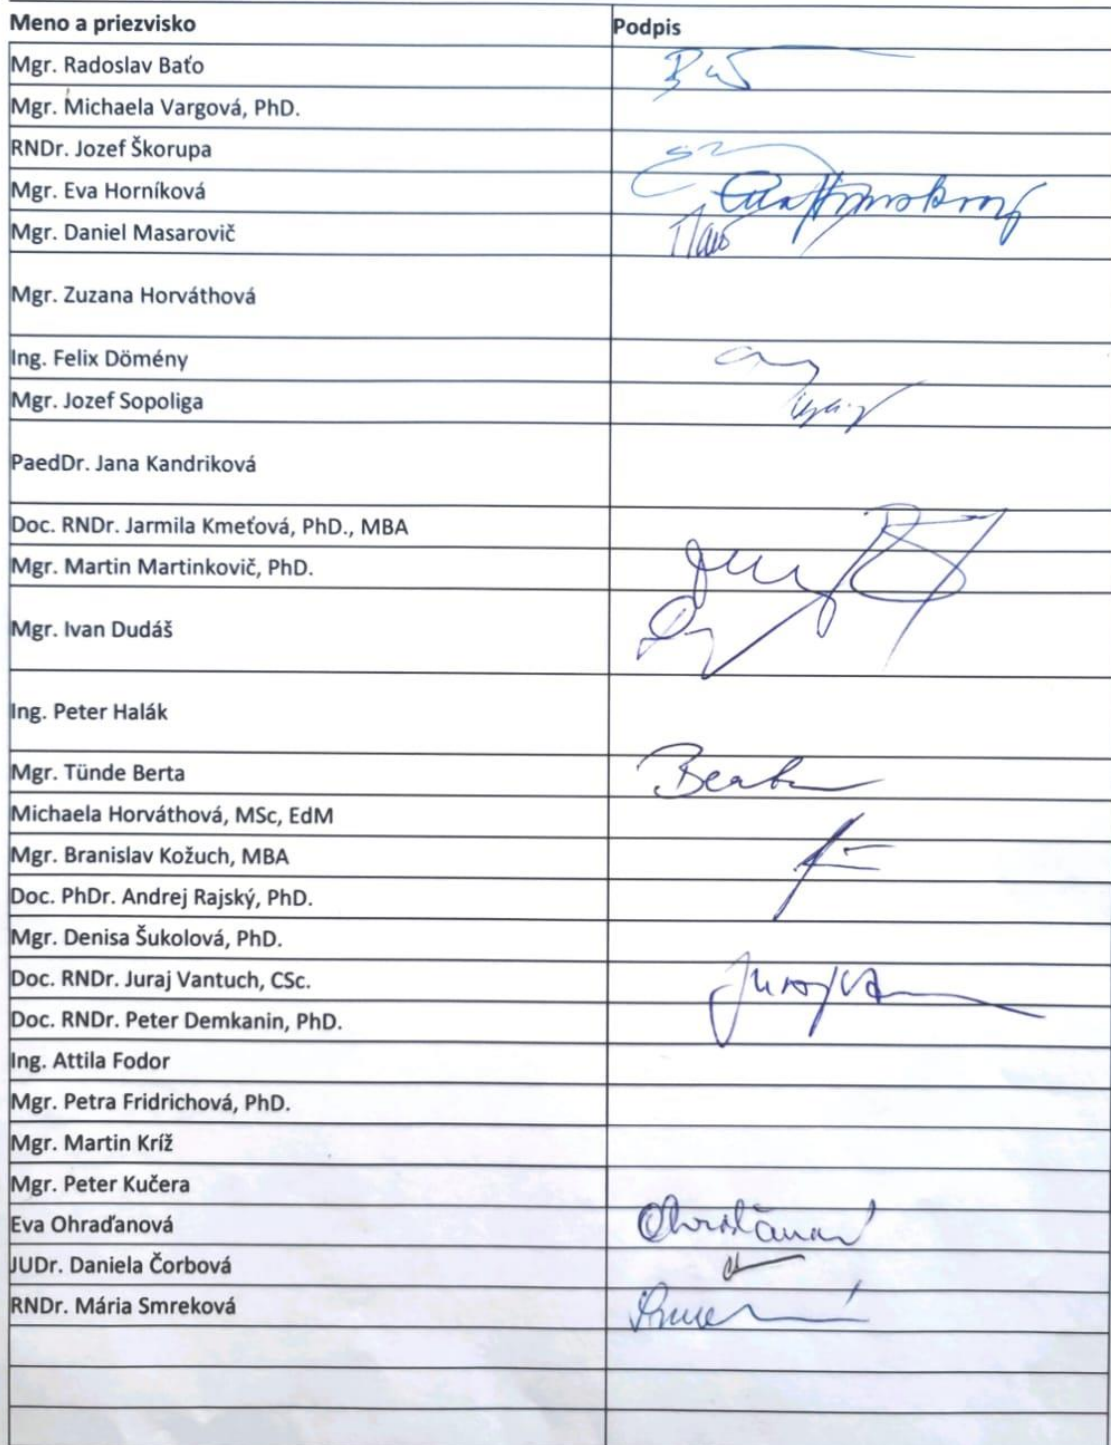 Meno a priezvisko Podpis
Mgr. Radoslav Baťo
Mgr. Michaela Vargová, PhD.
RNDr. Jozef Škorupa
Mgr. Eva Horníková
Mgr. Daniel Masarovič
Mgr. Zuzana Horváthová
Ing. Felix Dömény
Mgr. Jozef Sopoliga
PaedDr. Jana Kandriková
Doc. RNDr. Jarmila Kmeťová, PhD., MBA
Mgr. Martin Martinkovič, PhD.
Mgr. Ivan Dudáš
Ing. Peter Halák
Mgr. Tünde Berta Berta
Michaela Horváthová, MSc, EdM
Mgr. Branislav Kožuch, MBA
Doc. PhDr. Andrej Rajský, PhD.
Mgr. Denisa Šukolová, PhD.
Doc. RNDr. Juraj Vantuch, CSc.
Doc. RNDr. Peter Demkanin, PhD.
Ing. Attila Fodor
Mgr. Petra Fridrichová, PhD.
Mgr. Martin Kríž
Mgr. Peter Kučera
Eva Ohraďanová
JUDr. Daniela Čorbová
RNDr. Mária Smreková